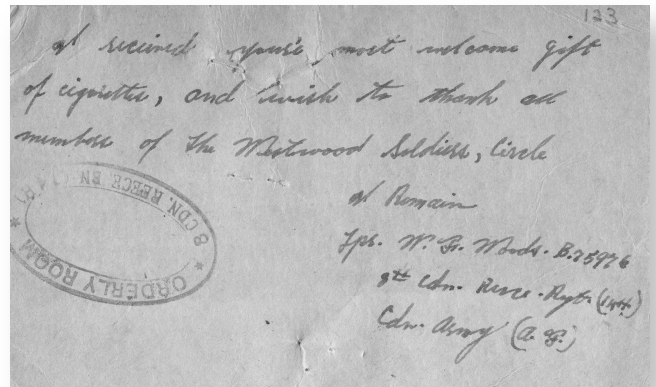 123
I received your's most welcome gift
of cigarettes, and wish to thank all
members of the Westwood Soldiers, Circle
I Remain
Tpr. W. G. Woods. B.75976
8th Cdn. Recce. Rgt. (14H)
Cdn. Army (A. F.)
8 CDN. RECCE BN (14H)
* ORDERLY ROOM *